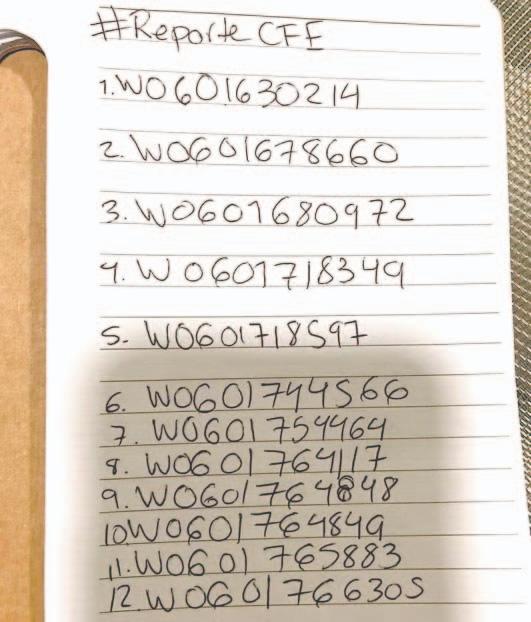 #Reporte CFE
1. W0601630214
2. W0601678660
3. W0601680972
4. W0601718349
5. W0601718597
6. W0601744566
7. W0601754464
8. W0601764117
9. W0601764848
10. W0601764849
11. W0601765883
12. W0601766305